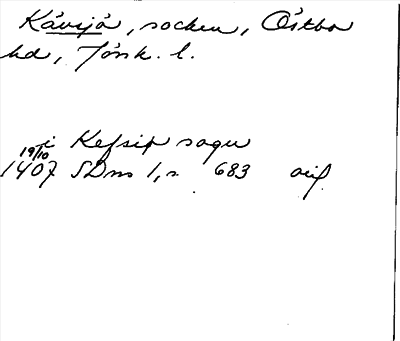 Kävsjö, socken, Östbo
hd, Jönk. l.
i Kefsiø sogn
19/10
1407 SDns 1, s. 683 avif